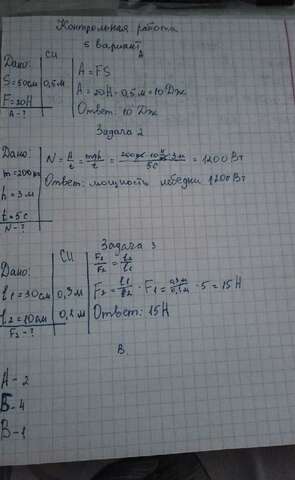 Контрольная работа
5 вариант
А
Дано: СИ
S=50см 0,5м
F=20Н
A-?
A=FS
A=20Н·0,5м=10Дж
Ответ: 10 Дж
Задача 2
Дано:
m=200кг
h=3м
t=5с
N-?
N=A/t=mgh/t= =1200Вт
Ответ: мощность лебедки 1200Вт
Задача 3
Дано: СИ
l1=30см 0,3м
l2=10см 0,1м
F2-?
F1/F2=l2/l1
F2=l1/l2·F1=0,3м/0,1м·5=15Н
Ответ: 15Н
В.
А-2
Б-4
В-1